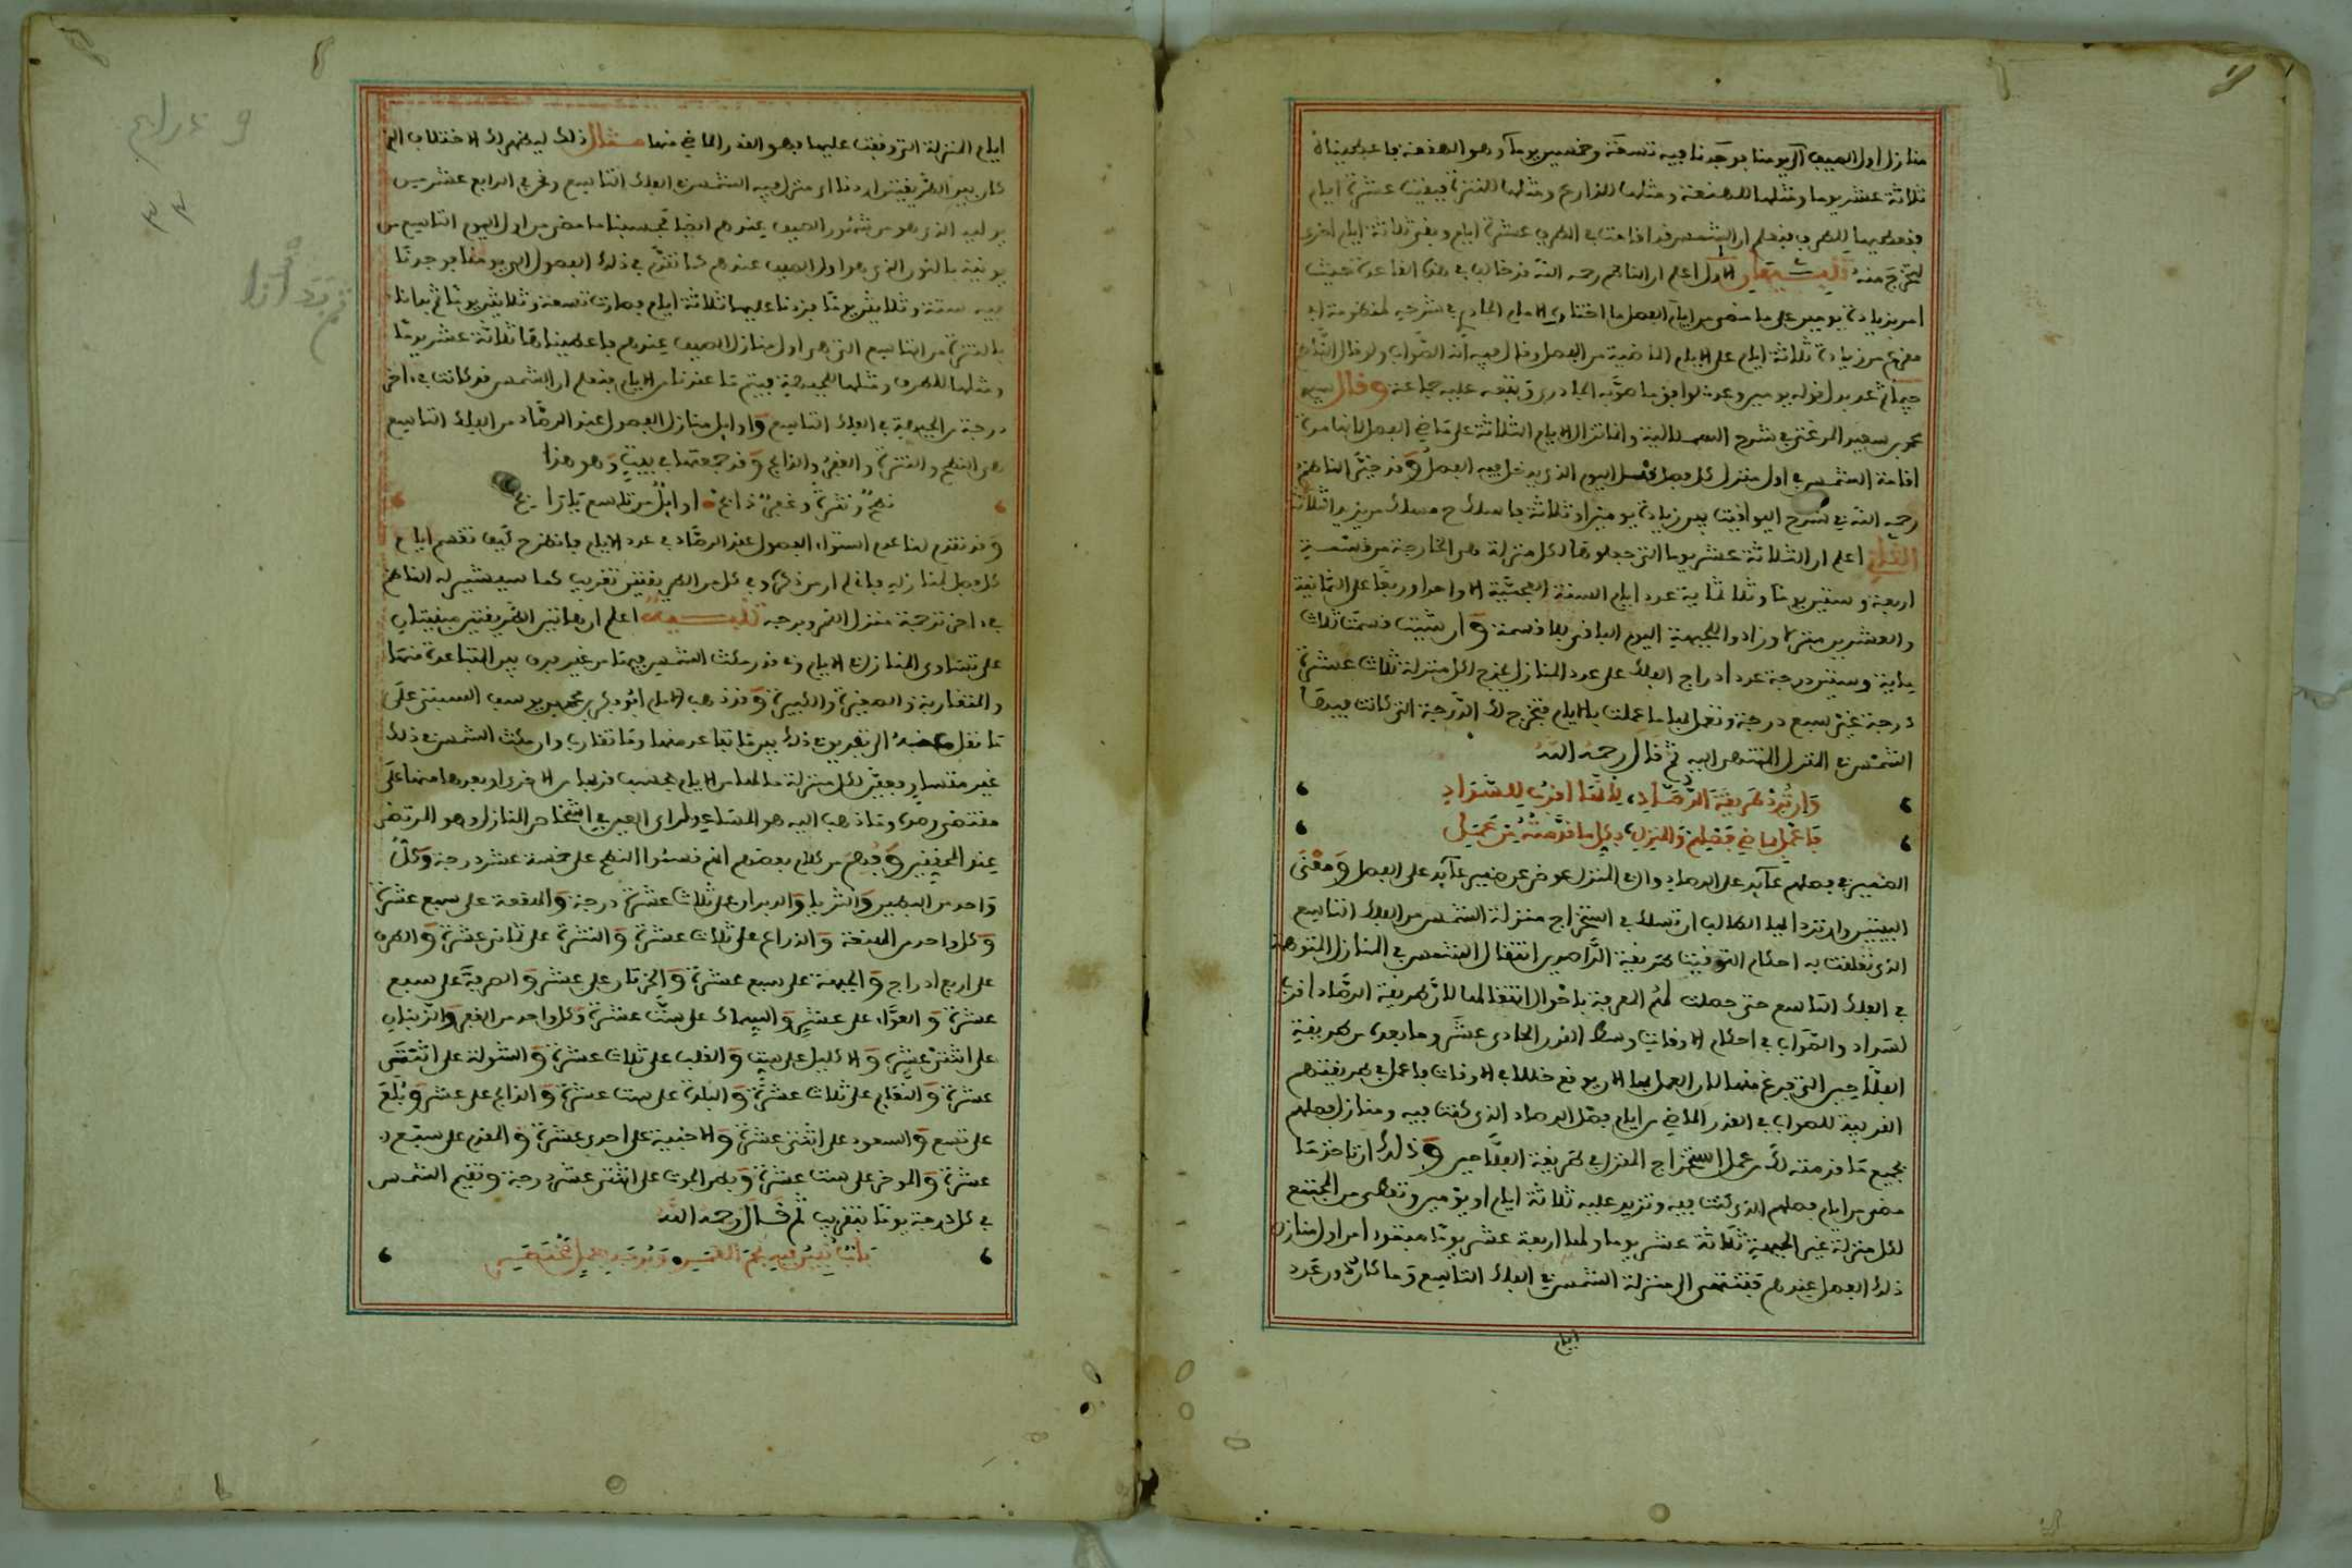 منازل اول الصيف الى يومنا بوجدنا فيه تسعة وخمسين يوما وهو الهقعة فاعطيناه
ثلاثة عشر يوما ومثلها للهنعة ومثلها للذراع ومثلها للنثرة فبقيت عشرة ايام
فنعطيها للطرف فنعلم ان الشمس قد اقامت في الطرف عشرة ايام وبقي ثلاثة ايام اخرى
لتخرج منه تنبيهان الاول اعلم ان الناظم رحمه الله قد خالف في هذه القاعدة حيث
امر بزيادة يومين على ما مضى من ايام الفصل ما اختاره الامام الجادري في شرحه لمنظومة ابي
مقرع من زيادة ثلاثة ايام على الايام الماضية من الفصل وقال فيه انه الصواب ولو قال
عدد بدل قوله يومين وعد لوافق ما صوبه الجادري وتبعه عليه جماعة وقال سيدي
محمد بن سعيد المرغتي في شرح وانما تزاد الايام الثلاثة على ماضي الفصل لانها مدة
اقامة الشمس في اول منزل كل فصل قبل اليوم الذي يدخل فيه الفصل وقد خير الناظم
رحمه الله في شرح اليواقيت بين زيادة يومين او ثلاثة فاسلك مسلك من يزيد الثلاثة
الثاني اعلم ان الثلاثة عشر يوما التي جعلوها لكل منزلة هي الخارجة من قسمة
اربعة وستين يوما وثلاثماية عدد ايام السنة العجمية الا واحدا وربعا على الثمانية
والعشرين منزلة وزادوا للجبهة اليوم الباقي بلا قسمة وان شيت قسمت ثلاث
ماية وستين درجة عدد ادراج الفلك على عدد المنازل يخرج لكل منزلة ثلاث عشرة
درجة غير سبع درجة وتعمل بها ما عملت بالايام فتخرج لك الدرجة التي كانت فيها
الشمس في المنزل المنتهى اليه ثم قال رحمه الله
وان ترد طريقة الرصاد، لانها اقرب للسداد
فاعمل بماضي فصلهم والمنزل، بكل ما قدمته من عمل
الضمير في فصلهم عايد على الرصاد وال في المنزل عوض عن ضمير عايد على الفصل ومعنى
البيتين وان ترد ايها الطالب ان تسلك في استخراج منزلة الشمس من الفلك التاسع
الذي تعلقت به احكام التوقيت طريقة الراصدين انتقال الشمس في المنازل المتوهمة
في الفلك التاسع حتى حصلت لهم المعرفة باحوال انتقالها لان طريقة الرصاد اقرب
لسداد والصواب في احكام الاوقات وسط القرن الحادي عشر وما بعده من طريقة
الفلاحين التي فرغ منها لان العمل بها الان يوقع خللا في الاوقات فاعمل في طريقتهم
القريبة للصواب في القدر الماضي من ايام فصل الرصاد الذي كنت فيه ومنازل فصلهم
بجميع ما قدمته لك من عمل استخراج المنزل في طريقة الفلاحين وذلك ان تاخذ ما
مضى من ايام فصلهم الذي كنت فيه وتزيد عليه ثلاثة ايام او يومين وتعطي من المجتمع
لكل منزلة غير الجبهة ثلاثة عشر يوما ولها اربعة عشر يوما مبتدءا من اول منازل
ذلك الفصل عندهم فتنتهي الى منزلة الشمس في الفلك التاسع وما كان دون عدد
ايام
ايام المنزلة التي وقفت عليها فهو القدر الماضي منها مثال ذلك ليظهر لك الاختلاف الذي
كان بين الطريقتين اردنا اي منزل فيه الشمس في الفلك التاسع ونحن في الرابع عشر من
يوليه الذي هو من شهور الصيف عندهم ايضا فحسبنا ما مضى من اول اليوم التاسع من
يونيه بالنور الذي هو اول الصيف عندهم كما تقدم في ذلك الفصول الى يومنا فوجدنا
فيه ستة وثلاثين يوما فزدنا عليها ثلاثة ايام فصارت تسعة وثلاثين يوما ثم بدانا
بالنثرة من التاسع التي هي اول منازل الصيف عندهم فاعطيناها ثلاثة عشر يوما
ومثلها للطرف ومثلها للجبهة فيتم ما عندنا من الايام فنعلم ان الشمس قد كانت في اخر
درجة من الجبهة في الفلك التاسع واوايل منازل الفصول عند الرصاد من الفلك التاسع
هي النطح والنثرة والغفر والذابح وقد جمعتها في بيت وهو هذا
نطح ونثرة وغفر ذابح اوايل من تاسع
وقد تقدم لنا عدم استواء الفصول عند الرصاد في عدد الايام فانظر كيف تقسم ايام
كل فصل لمنازله فاعلم ان من ذكره وفي كل من الطريقتين تقريب كما سيشير له الناظم
في اخر ترجمة منزل القمر وبرجه تنبيه اعلم ان هاتين الطريقتين مبنيتان
على تساوي المنازل في الايام في قدر مكث الشمس فيها من غير فرق بين المتباعدة منها
والمتقاربة والصغيرة والكبيرة وقد ذهب الامام ابو بكر محمد بن يوسف السبتي على
ما نقل عنه الى تفريق ذلك بين ما تباعد منها وما تقارب وان مكث الشمس في ذلك
غير متساو فيعطى لكل منزلة ما لها من الايام بحسب قربها من الاخرى او بعدها منها على
مقتضى رصده وما ذهب اليه هو المشاهد لراي العين في اشخاص المنازل وهو المرتضى
عند المحققين وفهم من كلام بعضهم انهم قسموا النطح على خمسة عشر درجة وكل
واحد من البطين والثريا والدبران على ثلاث عشرة درجة والهقعة على سبع عشرة
وكل واحد من الهنعة والذراع على ثلاث عشرة والنثرة على ثماني عشرة والطرف
على اربع ادراج والجبهة على سبع عشرة والخرتان على عشر والصرفة على سبع
عشرة والعواء على عشر والسماك على ست عشرة وكل واحد من الغفر والزبنان
على اثنتي عشرة والاكليل على ست والقلب على ثلاث عشرة والشولة على اثنتي
عشرة والنعايم على ثلاث عشرة والبلدة على ست عشرة والذابح على عشر وبلع
على تسع والسعود على اثنتي عشرة والاخبية على احدى عشرة والمقدم على سبع
عشرة والموخر على ست عشرة وبطن الحوت على اثنتي عشر درجة وتقيم الشمس
في كل درجة يوما بتقريب ثم قال رحمه الله